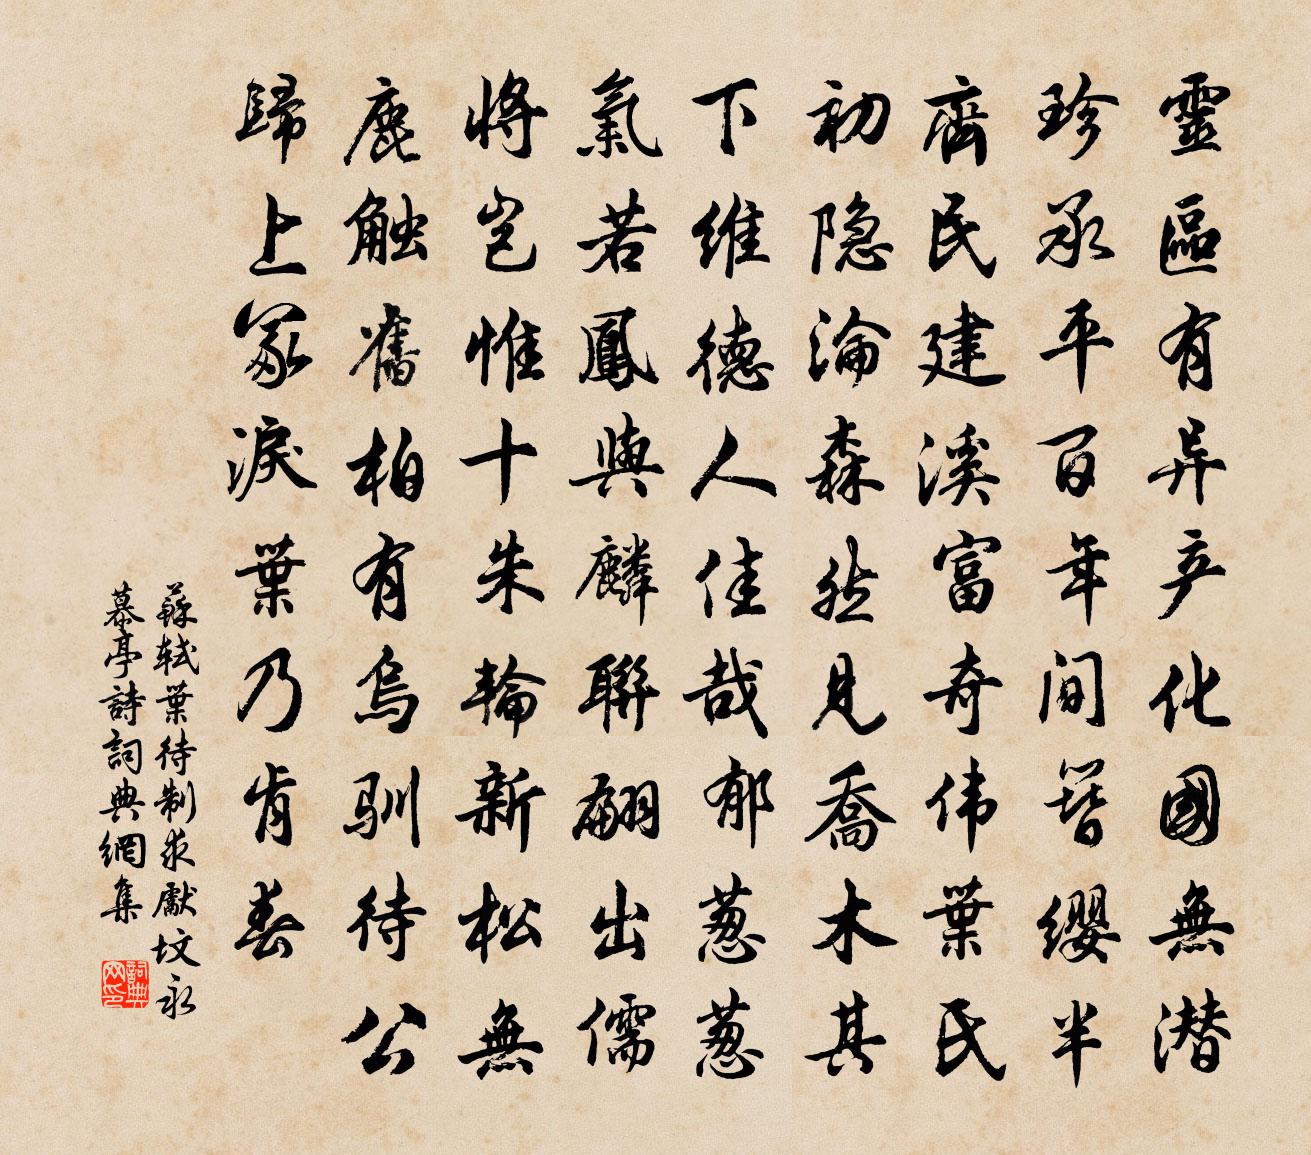 靈區有异产化國無潜
珍承平百年间簪缨半
齊民建溪富奇伟葉氏
初隐淪森然見喬木其
下維德人佳哉郁葱葱
氣若鳳與麟聯翩出儒
將岂惟十朱輪新松無
鹿触舊柏有烏驯待公
歸上冢淚葉乃肯春
蘇軾葉待制求獻坟永
慕亭詩詞典網集
詞典网印